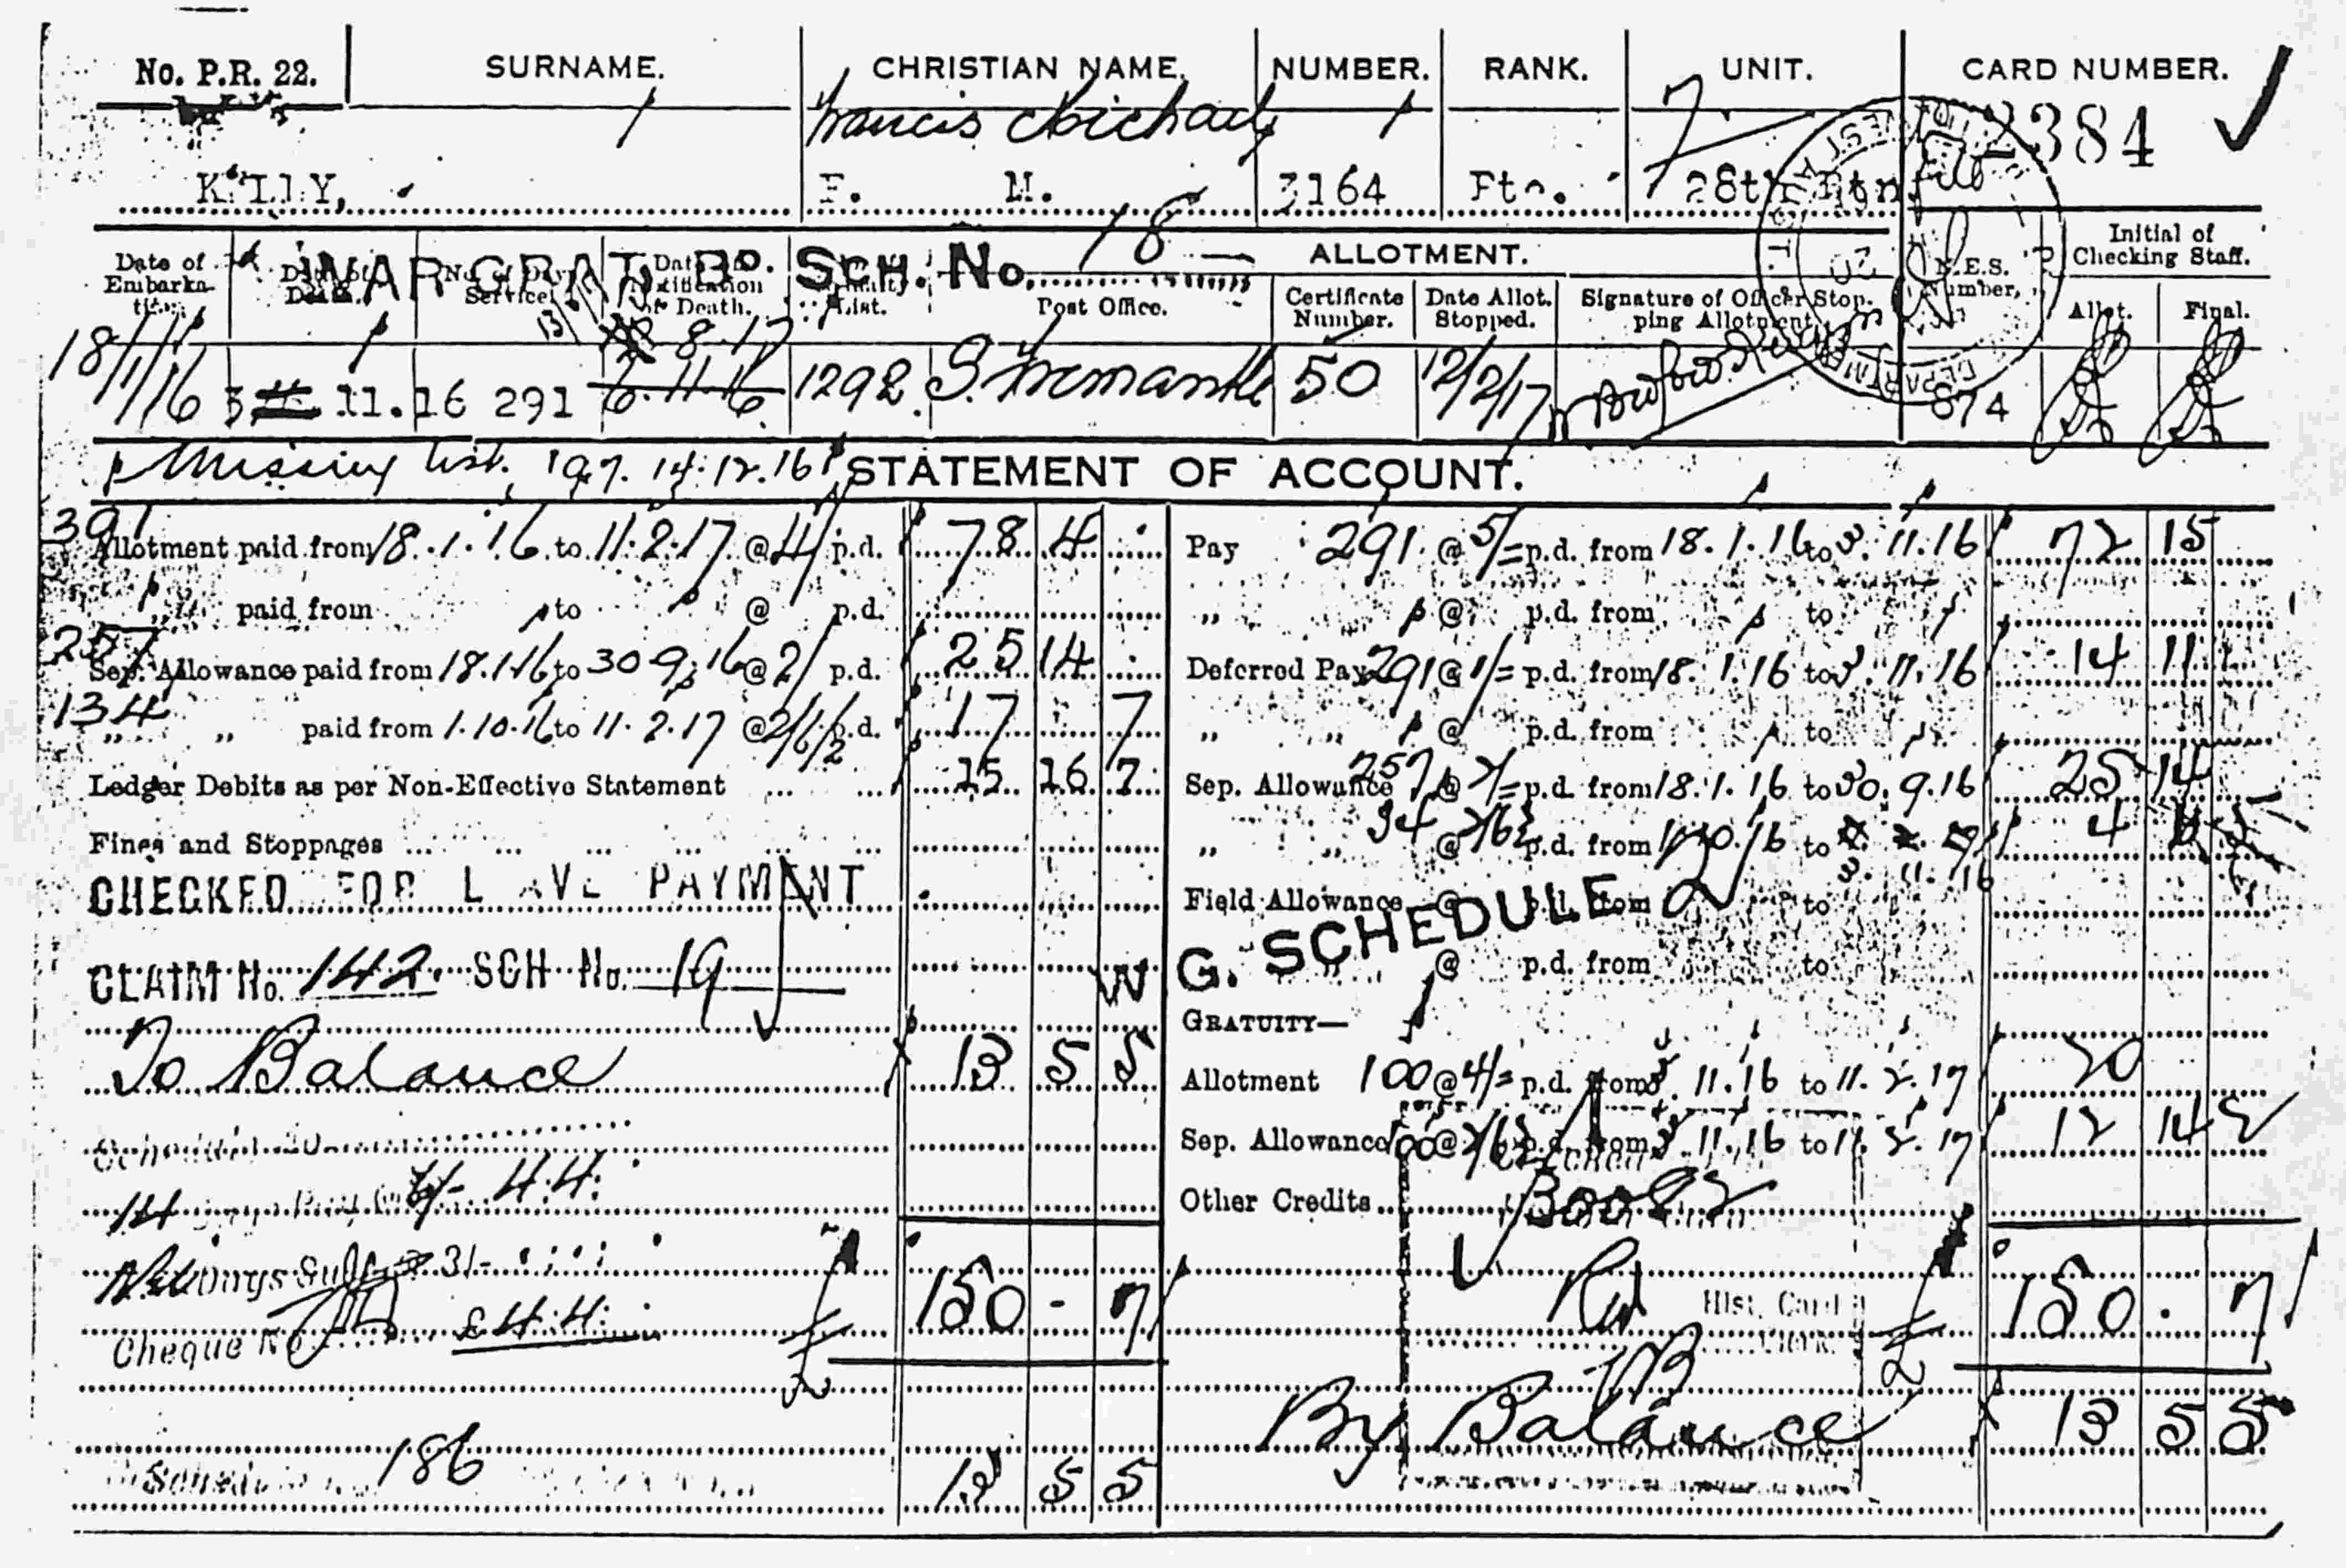 No. P.R. 22. SURNAME. CHRISTIAN NAME. NUMBER. RANK. UNIT. CARD NUMBER.
Francis Michael 2384
F. M. 3164 Pte. 28th Btn
WAR GRAT. BD. SCH. No. 18
ALLOTMENT.
Initial of Checking Staff.
Date of Embarkation Service. Date Notification of Death. List. Post Office. Certificate Number. Date Allot. Stopped. Signature of Officer Stopping Allotment N.E.S. Number, Allot. Final.
8.17
18/1/16 3 11.16 291 6.11.16 1292 S. Fremantle 50 12/2/17 874
Missing list. 197. 14.12.16 STATEMENT OF ACCOUNT.
391
Allotment paid from 18.1.16 to 11.2.17 @ 4/ p.d. 78 4 Pay 291 @ 5/= p.d. from 18.1.16 to 3.11.16 72 15
paid from to @ p.d. „ „ @ p.d. from to
257
Sep. Allowance paid from 18.1.16 to 30 9.16 @ 2/ p.d. 25 14 Deferred Pay 291 @ 1/= p.d. from 18.1.16 to 3.11.16 14 11
134
„ „ paid from 1.10.16 to 11.2.17 @ 2/6½ p.d. 17 7 „ „ @ p.d. from to
Ledger Debits as per Non-Effective Statement 15 16 7 Sep. Allowance 257 @ 2/= p.d. from 18.1.16 to 30.9.16 25 14
Fines and Stoppages „ „ 34 @ 2/6½ p.d. from 1.10.16 to 3.11.16 4
CHECKED FOR L AVE PAYMENT Field Allowance @ from to
G. SCHEDULE 2
CLAIM No. 142. SCH No. 19 @ p.d. from to
GRATUITY—
To Balance 13 5 5 Allotment 100 @ 4/= p.d. from 3.11.16 to 11.2.17 20
Sep. Allowance 100 @ 2/6½ p.d. from 3.11.16 to 11.2.17 12 14 2
14 4.4. Other Credits
Days 3/-
150 - 7 Hist. Card 150 . 7
Cheque No. £4.4.
By Balance 13 5 5
186 13 5 5